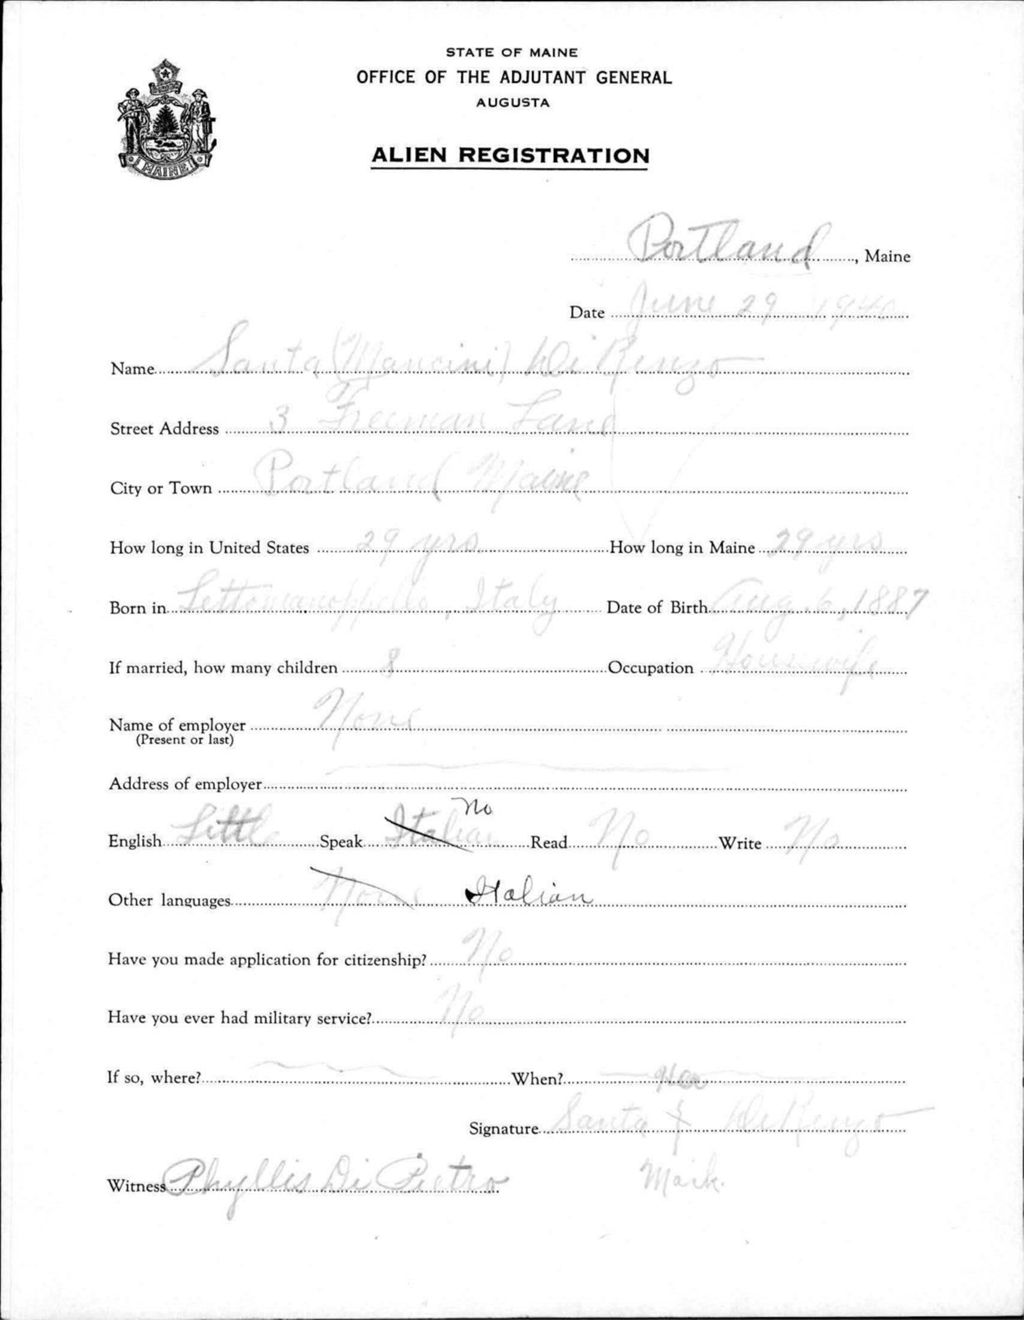 STATE OF MAINE
OFFICE OF THE ADJUTANT GENERAL
AUGUSTA
ALIEN REGISTRATION
MAINE
Portland, Maine
Date June 29 1940
Name Santa (Mancini) Di Renzo
Street Address 3 Freeman Lane
City or Town Portland Maine
How long in United States 29 yrs How long in Maine 29 yrs
Born in Lettomanoppello, Italy Date of Birth Aug. 6, 1887
If married, how many children 8 Occupation Housewife
Name of employer None
(Present or last)
Address of employer
No
English Little Speak Italian Read No Write No
Other languages None Italian
Have you made application for citizenship? No
Have you ever had military service? No
If so, where? When?
Her
Signature Santa X Di Renzo
Witness Phyllis Di Pietro Mark.